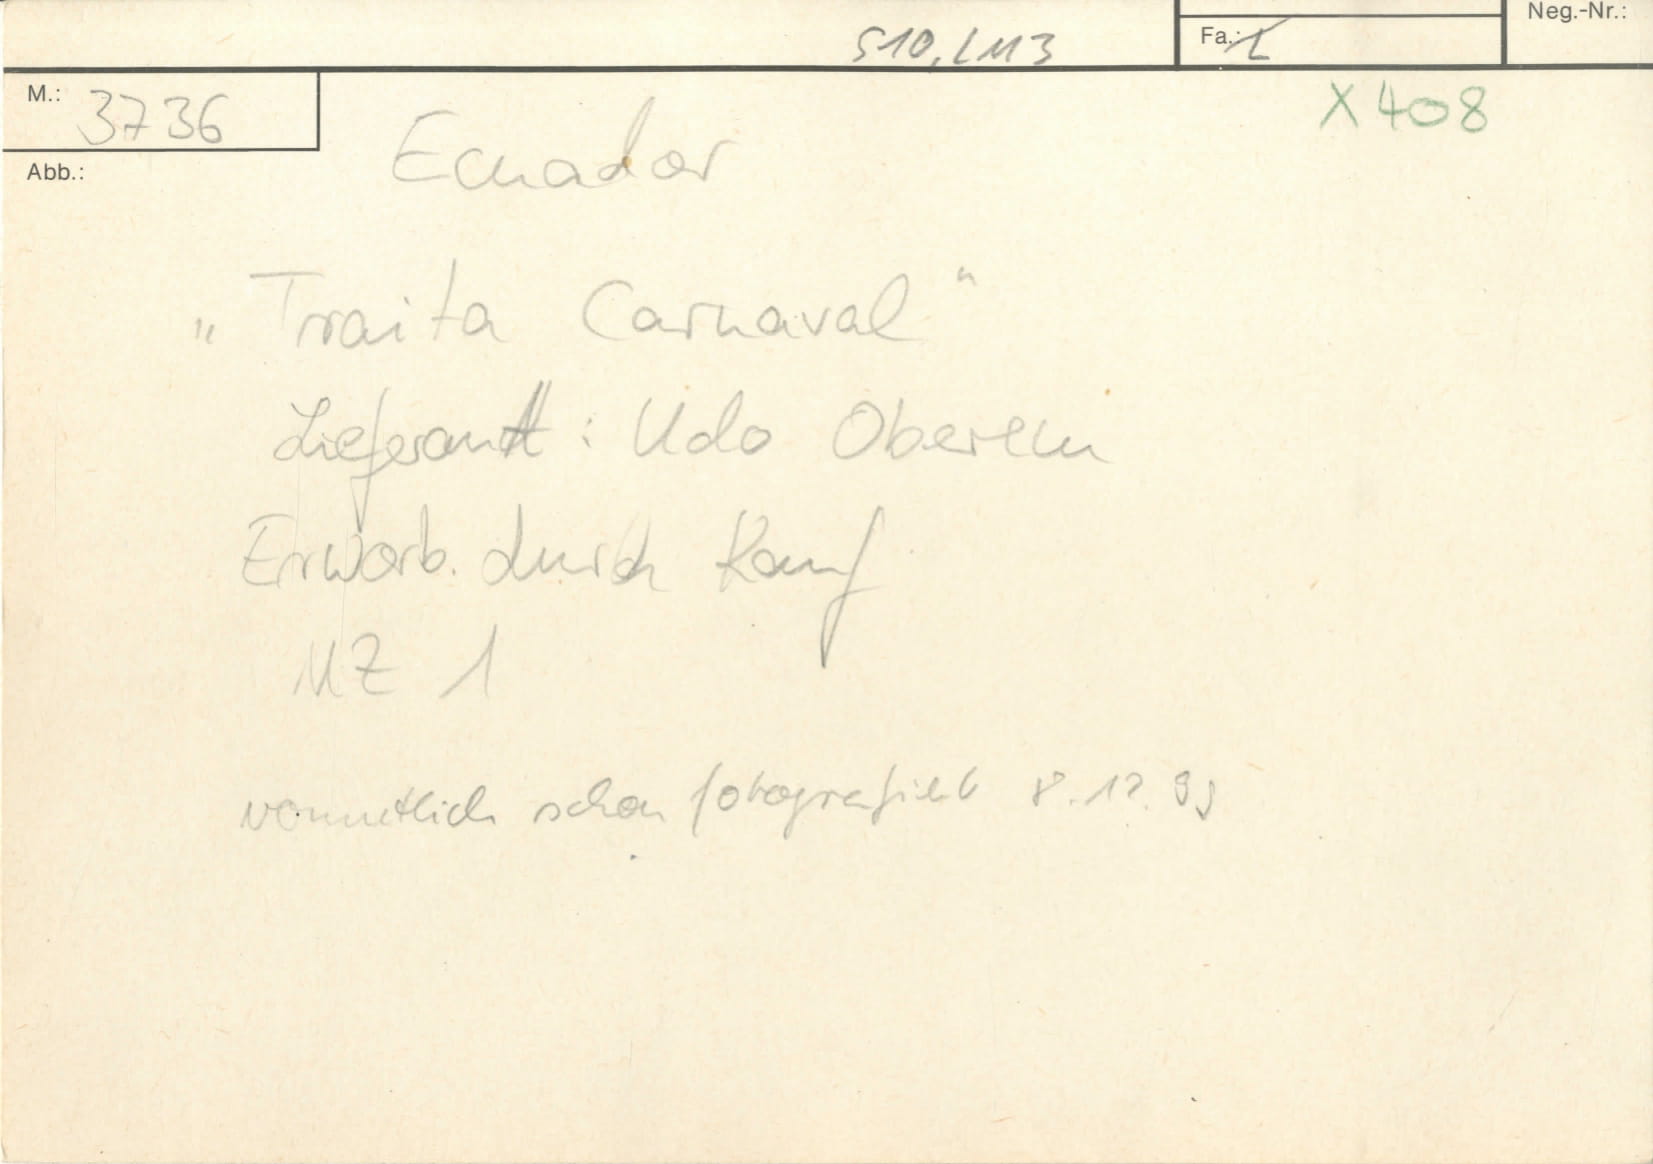 Neg.-Nr.:
S10, LM3
Fa.: L
M.: 3736
X 408
Abb.:
Ecuador
"Traita Carnaval"
Lieferant: Udo Oberem
Erworb. durch Kauf
MZ 1
vermutlich schon fotografiert 8.12.99